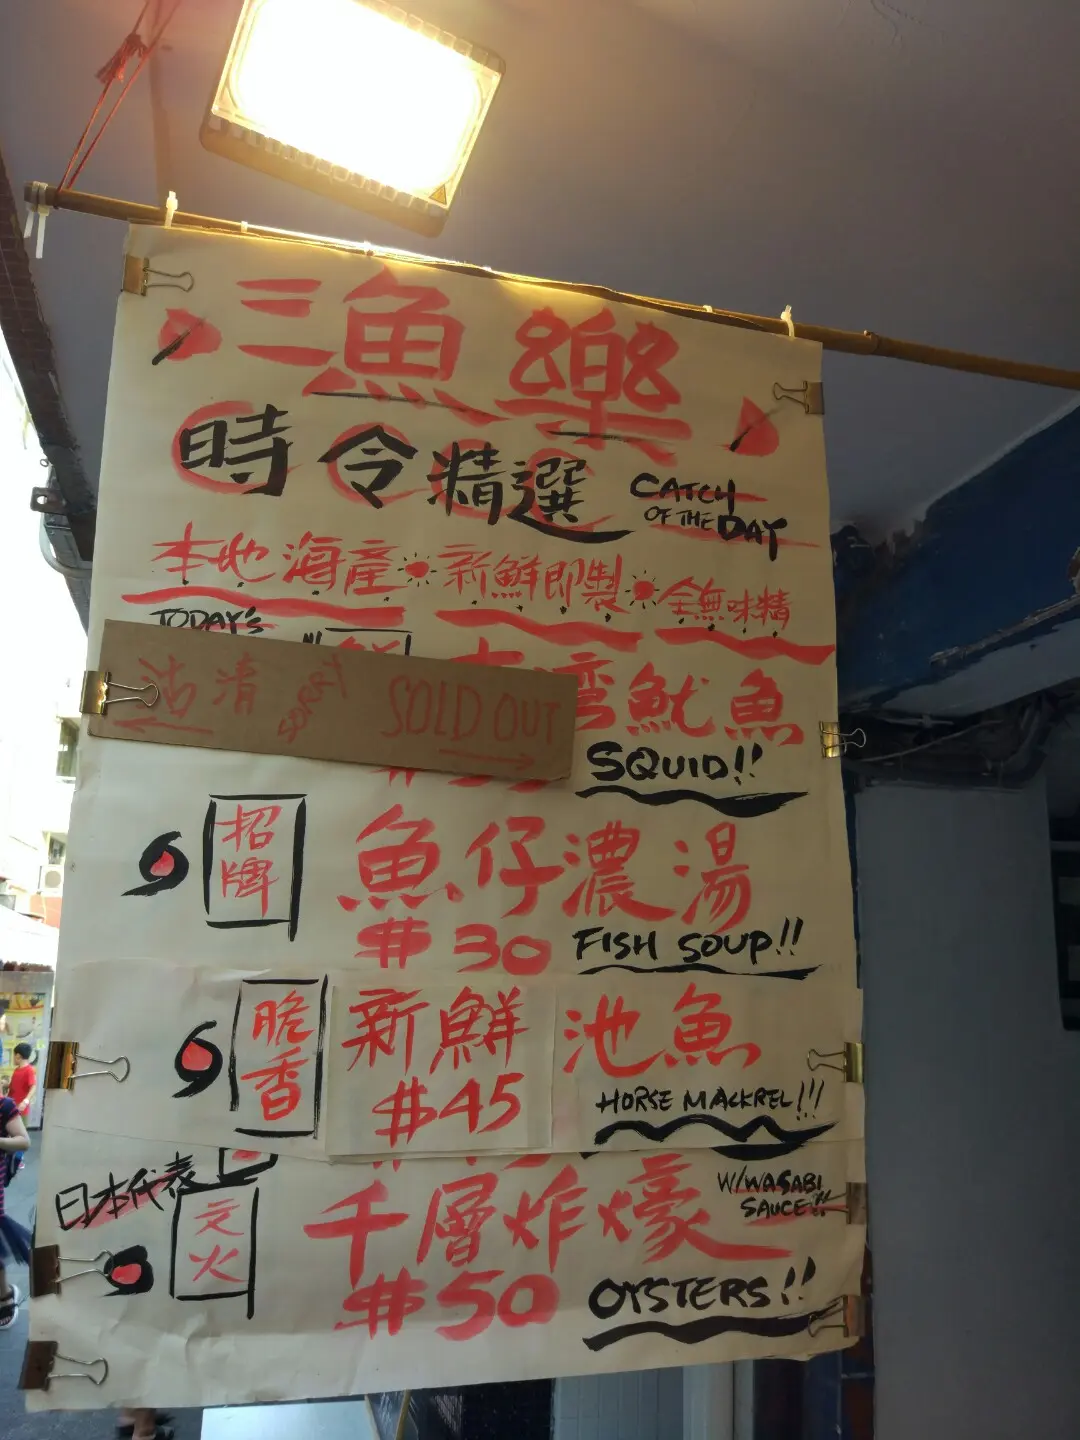 三魚樂
時令精選 CATCH OF THE DAY
本地海產 新鮮即製 全無味精
TODAY'S
沽清 SORRY SOLD OUT
灣魷魚
SQUID!!
招牌 魚仔濃湯
$30 FISH SOUP!!
脆香 新鮮池魚
$45 HORSE MACKREL!!!
日本代表
文火 千層炸蠔 W/WASABI SAUCE!!
$50 OYSTERS!!